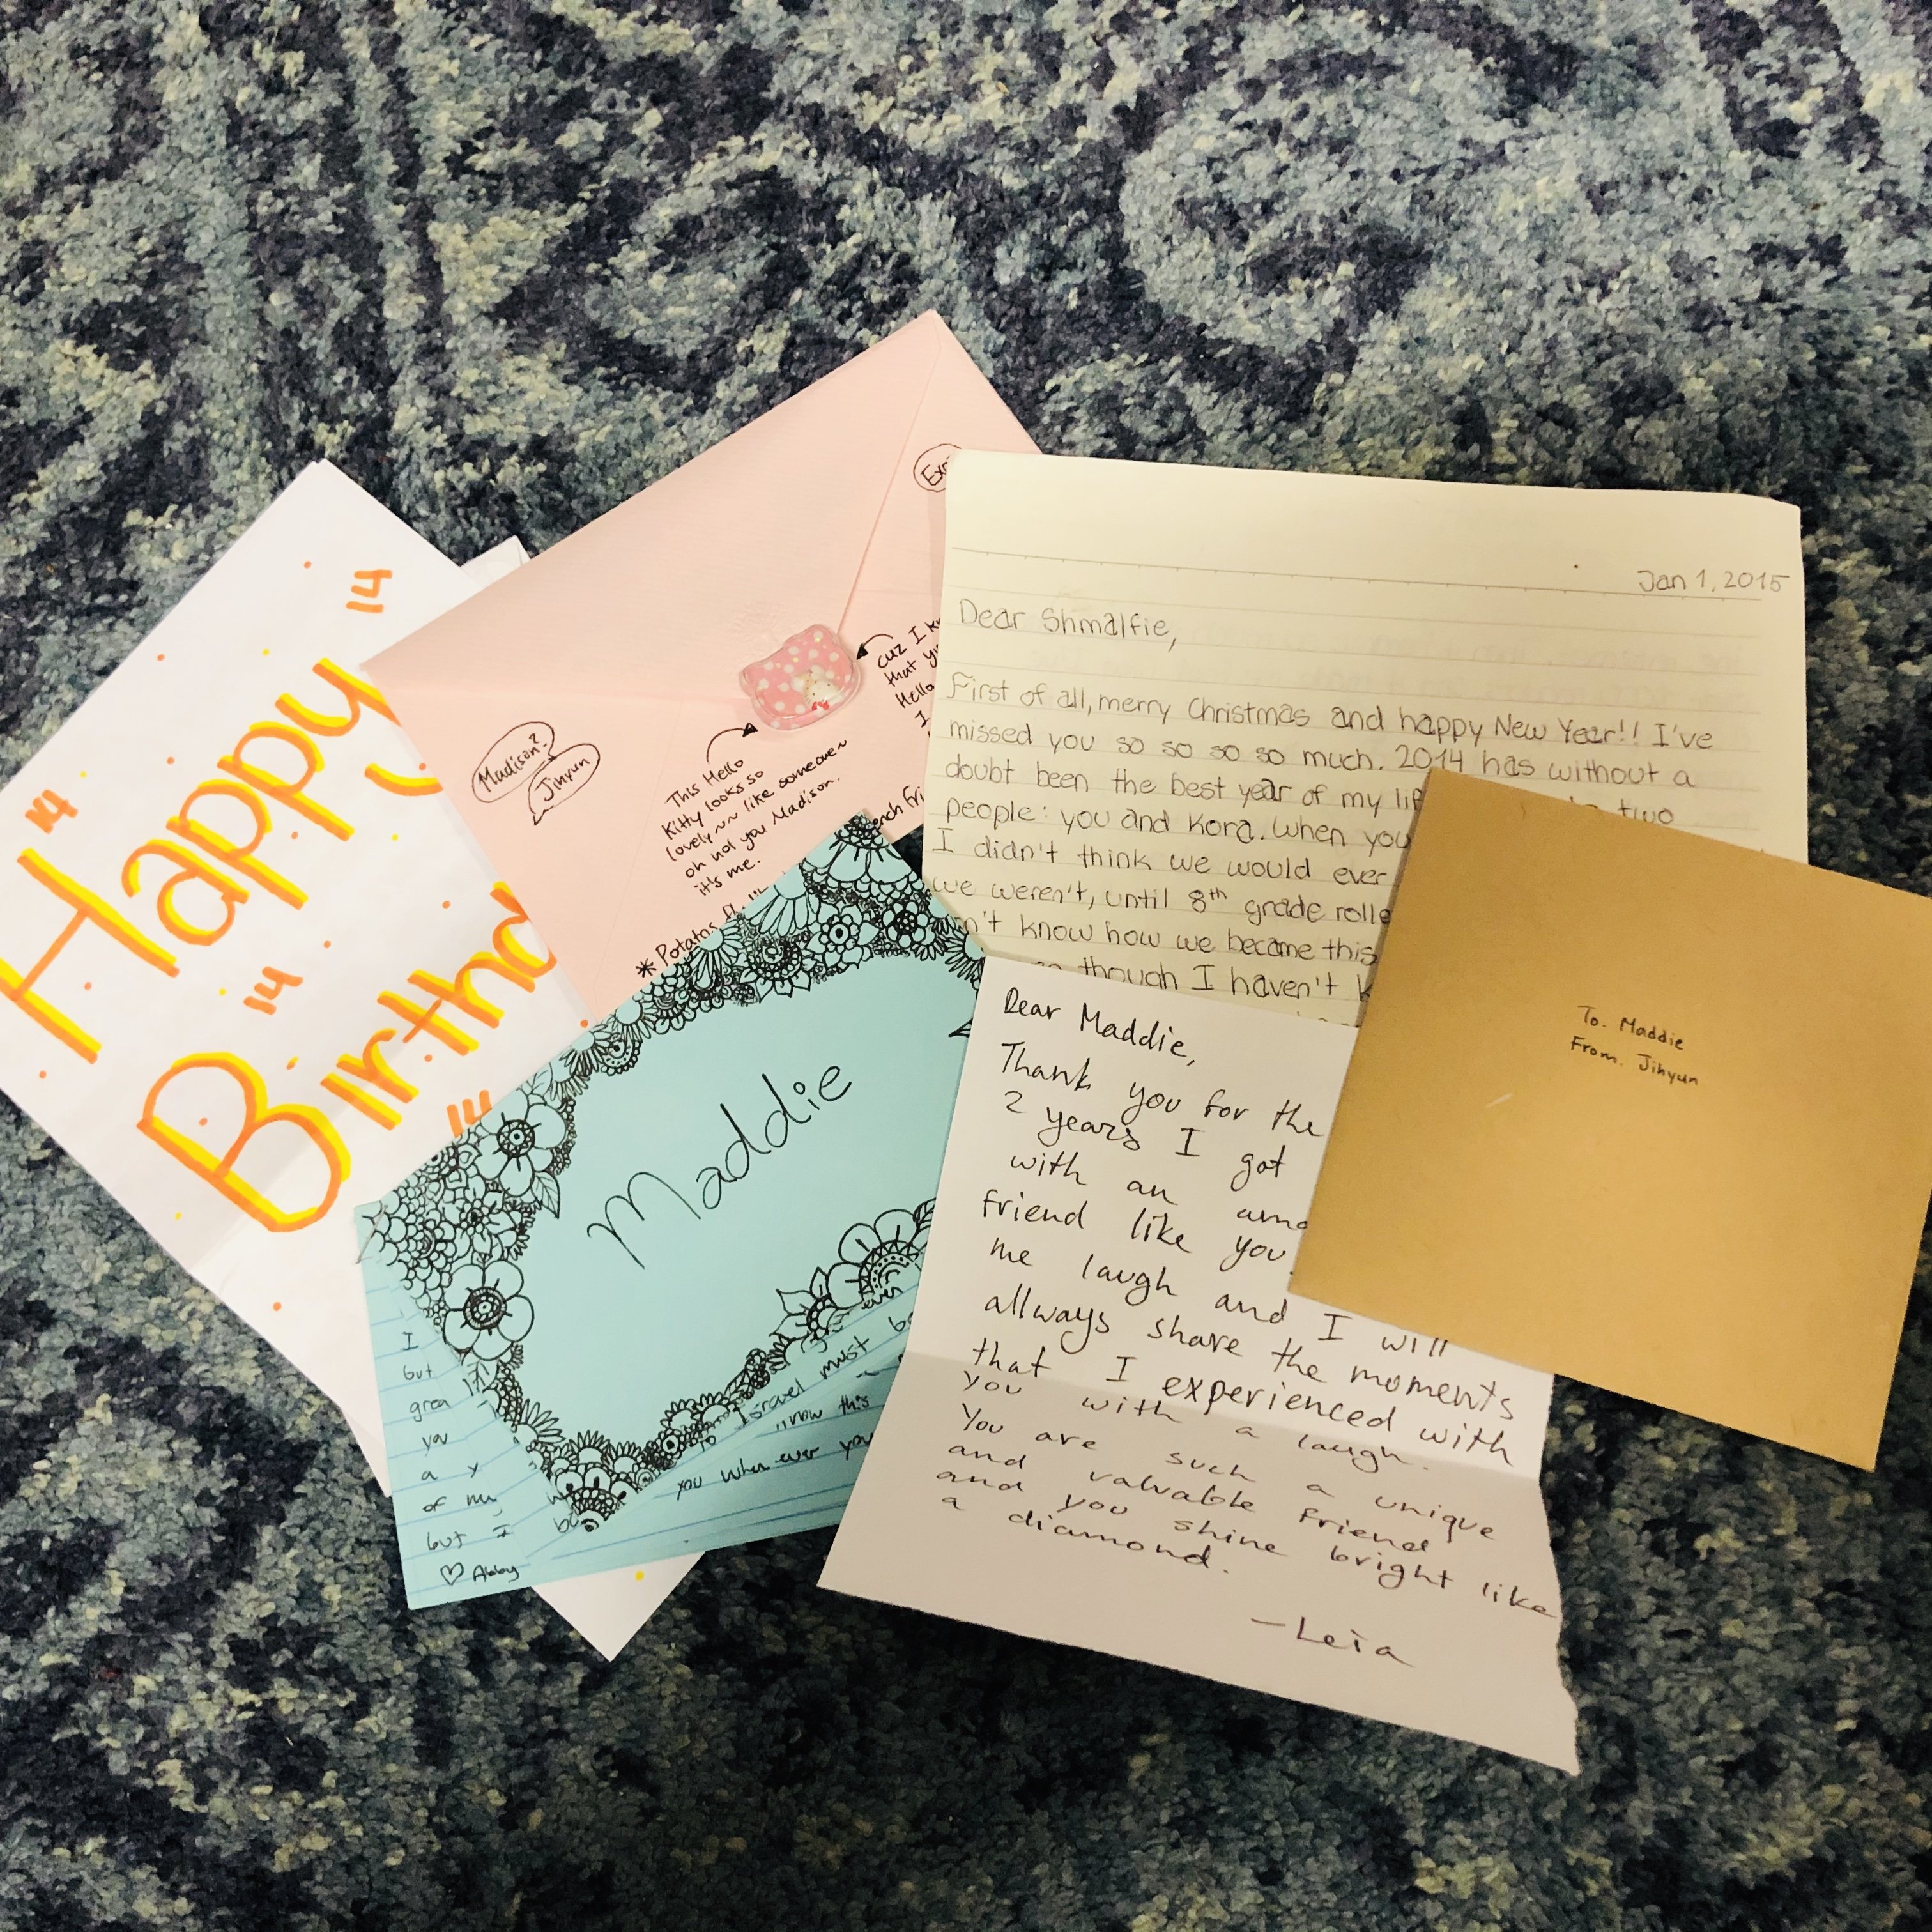 14
14
Happy
14
Birthd
14
Madison?
Jihyun
This Hello
Kitty looks so
lovely~~ like someone~
oh not you Madison.
it's me.
cuz I k
that y
Hello
I
* Potatos
Jan 1, 2015
Dear Shmalfie,
First of all, merry Christmas and happy New Year!! I've
missed you so so so so much. 2014 has without a
doubt been the best year of my lif two
people: you and Kora. When you
I didn't think we would ever
we weren't, until 8th grade rolle
n't know how we became this
though I haven't k
Maddie
I
but
grea
you
a y
of my
but I
♡ Abby
even
Israel must b
now this
you when ever you
Dear Maddie,
Thank you for the
2 years I got
with an ama
friend like you.
me laugh and I will
allways share the moments
that I experienced with
you with a laugh.
You are such a unique
and valvable friend
and you shine bright like
a diamond.
-Leia
To. Maddie
From. Jihyun